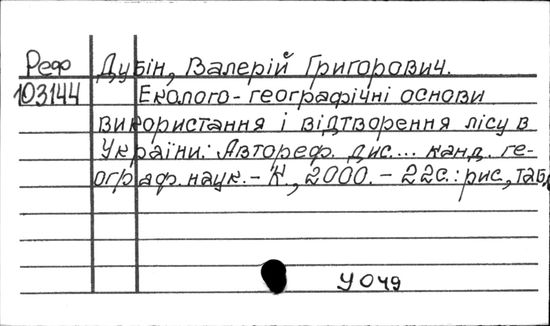 Реф Дубін, Валерій Григорович.
103144 Еколого-географічні основи
використання і відтворення лісу в
Україні: Автореф. дис.... канд. ге-
ограф. наук. - К., 2000. - 22с.: рис., табл
У 049